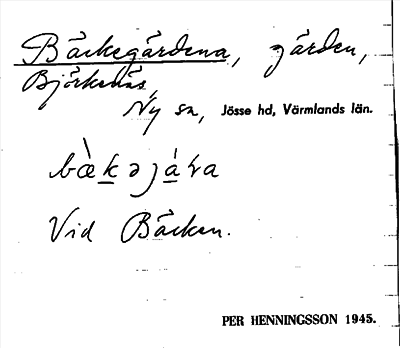 Bäckegärdena, gärden,
Björkenäs,
Ny sn, Jösse hd, Värmlands län.
bæ̀kəjá̱ra
Vid Bäcken.
PER HENNINGSSON 1945.